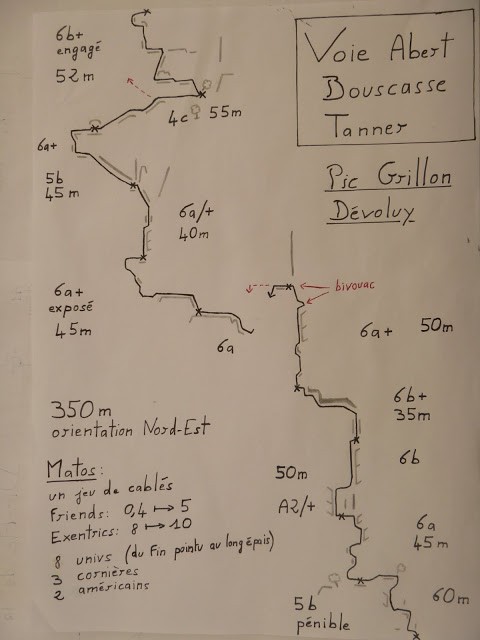 Voie Abert
Bouscasse
Tanner
Pic Grillon
Dévoluy
6b+
engagé
52m
4c 55m
6a+
5b
45m
6a/+
40m
6a+
exposé
45m
6a
bivouac
6a+ 50m
6b+
35m
6b
50m
A2/+
6a
45m
5b
pénible
60m
350m
orientation Nord-Est
Matos:
un jeu de cablés
Friends: 0,4 ↦ 5
Exentrics: 8 ↦ 10
8 univs (du Fin pointu au long épais)
3 cornières
2 américains